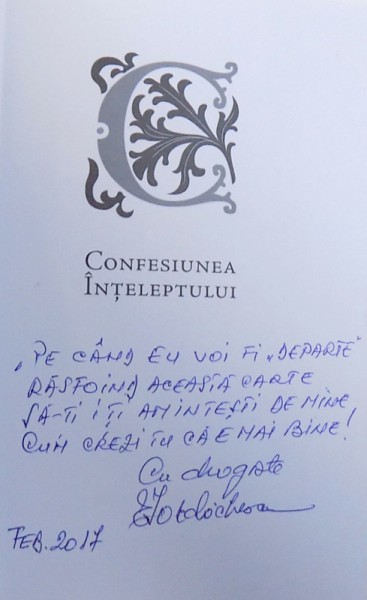 CONFESIUNEA
ÎNȚELEPTULUI
„PE CÂND EU VOI FI „DEPARTE"
RĂSFOIND ACEASTĂ CARTE
SĂ-ȚI ÎȚI AMINTEȘTI DE MINE
CUM CREZI TU CĂ E MAI BINE!
Cu dragoste
FEB. 2017